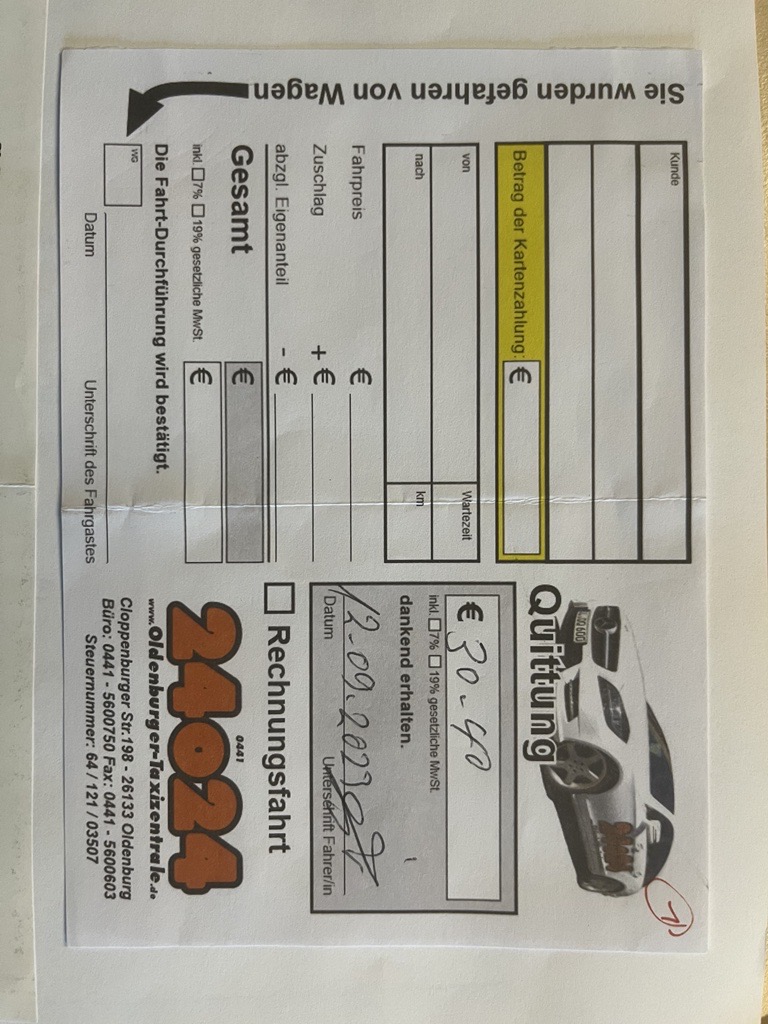 Sie wurden gefahren von Wagen
Kunde
Betrag der Kartenzahlung: €
von
Wartezeit
nach
km
Fahrpreis €
Zuschlag + €
abzgl. Eigenanteil - €
Gesamt €
inkl. 7% 19% gesetzliche MwSt. €
Die Fahrt-Durchführung wird bestätigt.
WG
Datum Unterschrift des Fahrgastes
24024
Quittung
€ 30-40
inkl. 7% 19% gesetzliche MwSt.
dankend erhalten.
12.09.2023
Datum Unterschrift Fahrer/in
Rechnungsfahrt
0441
24024
www.Oldenburger-Taxizentrale.de
Cloppenburger Str.198 - 26133 Oldenburg
Büro: 0441 - 5600750 Fax: 0441 - 5600603
Steuernummer: 64 / 121 / 03507